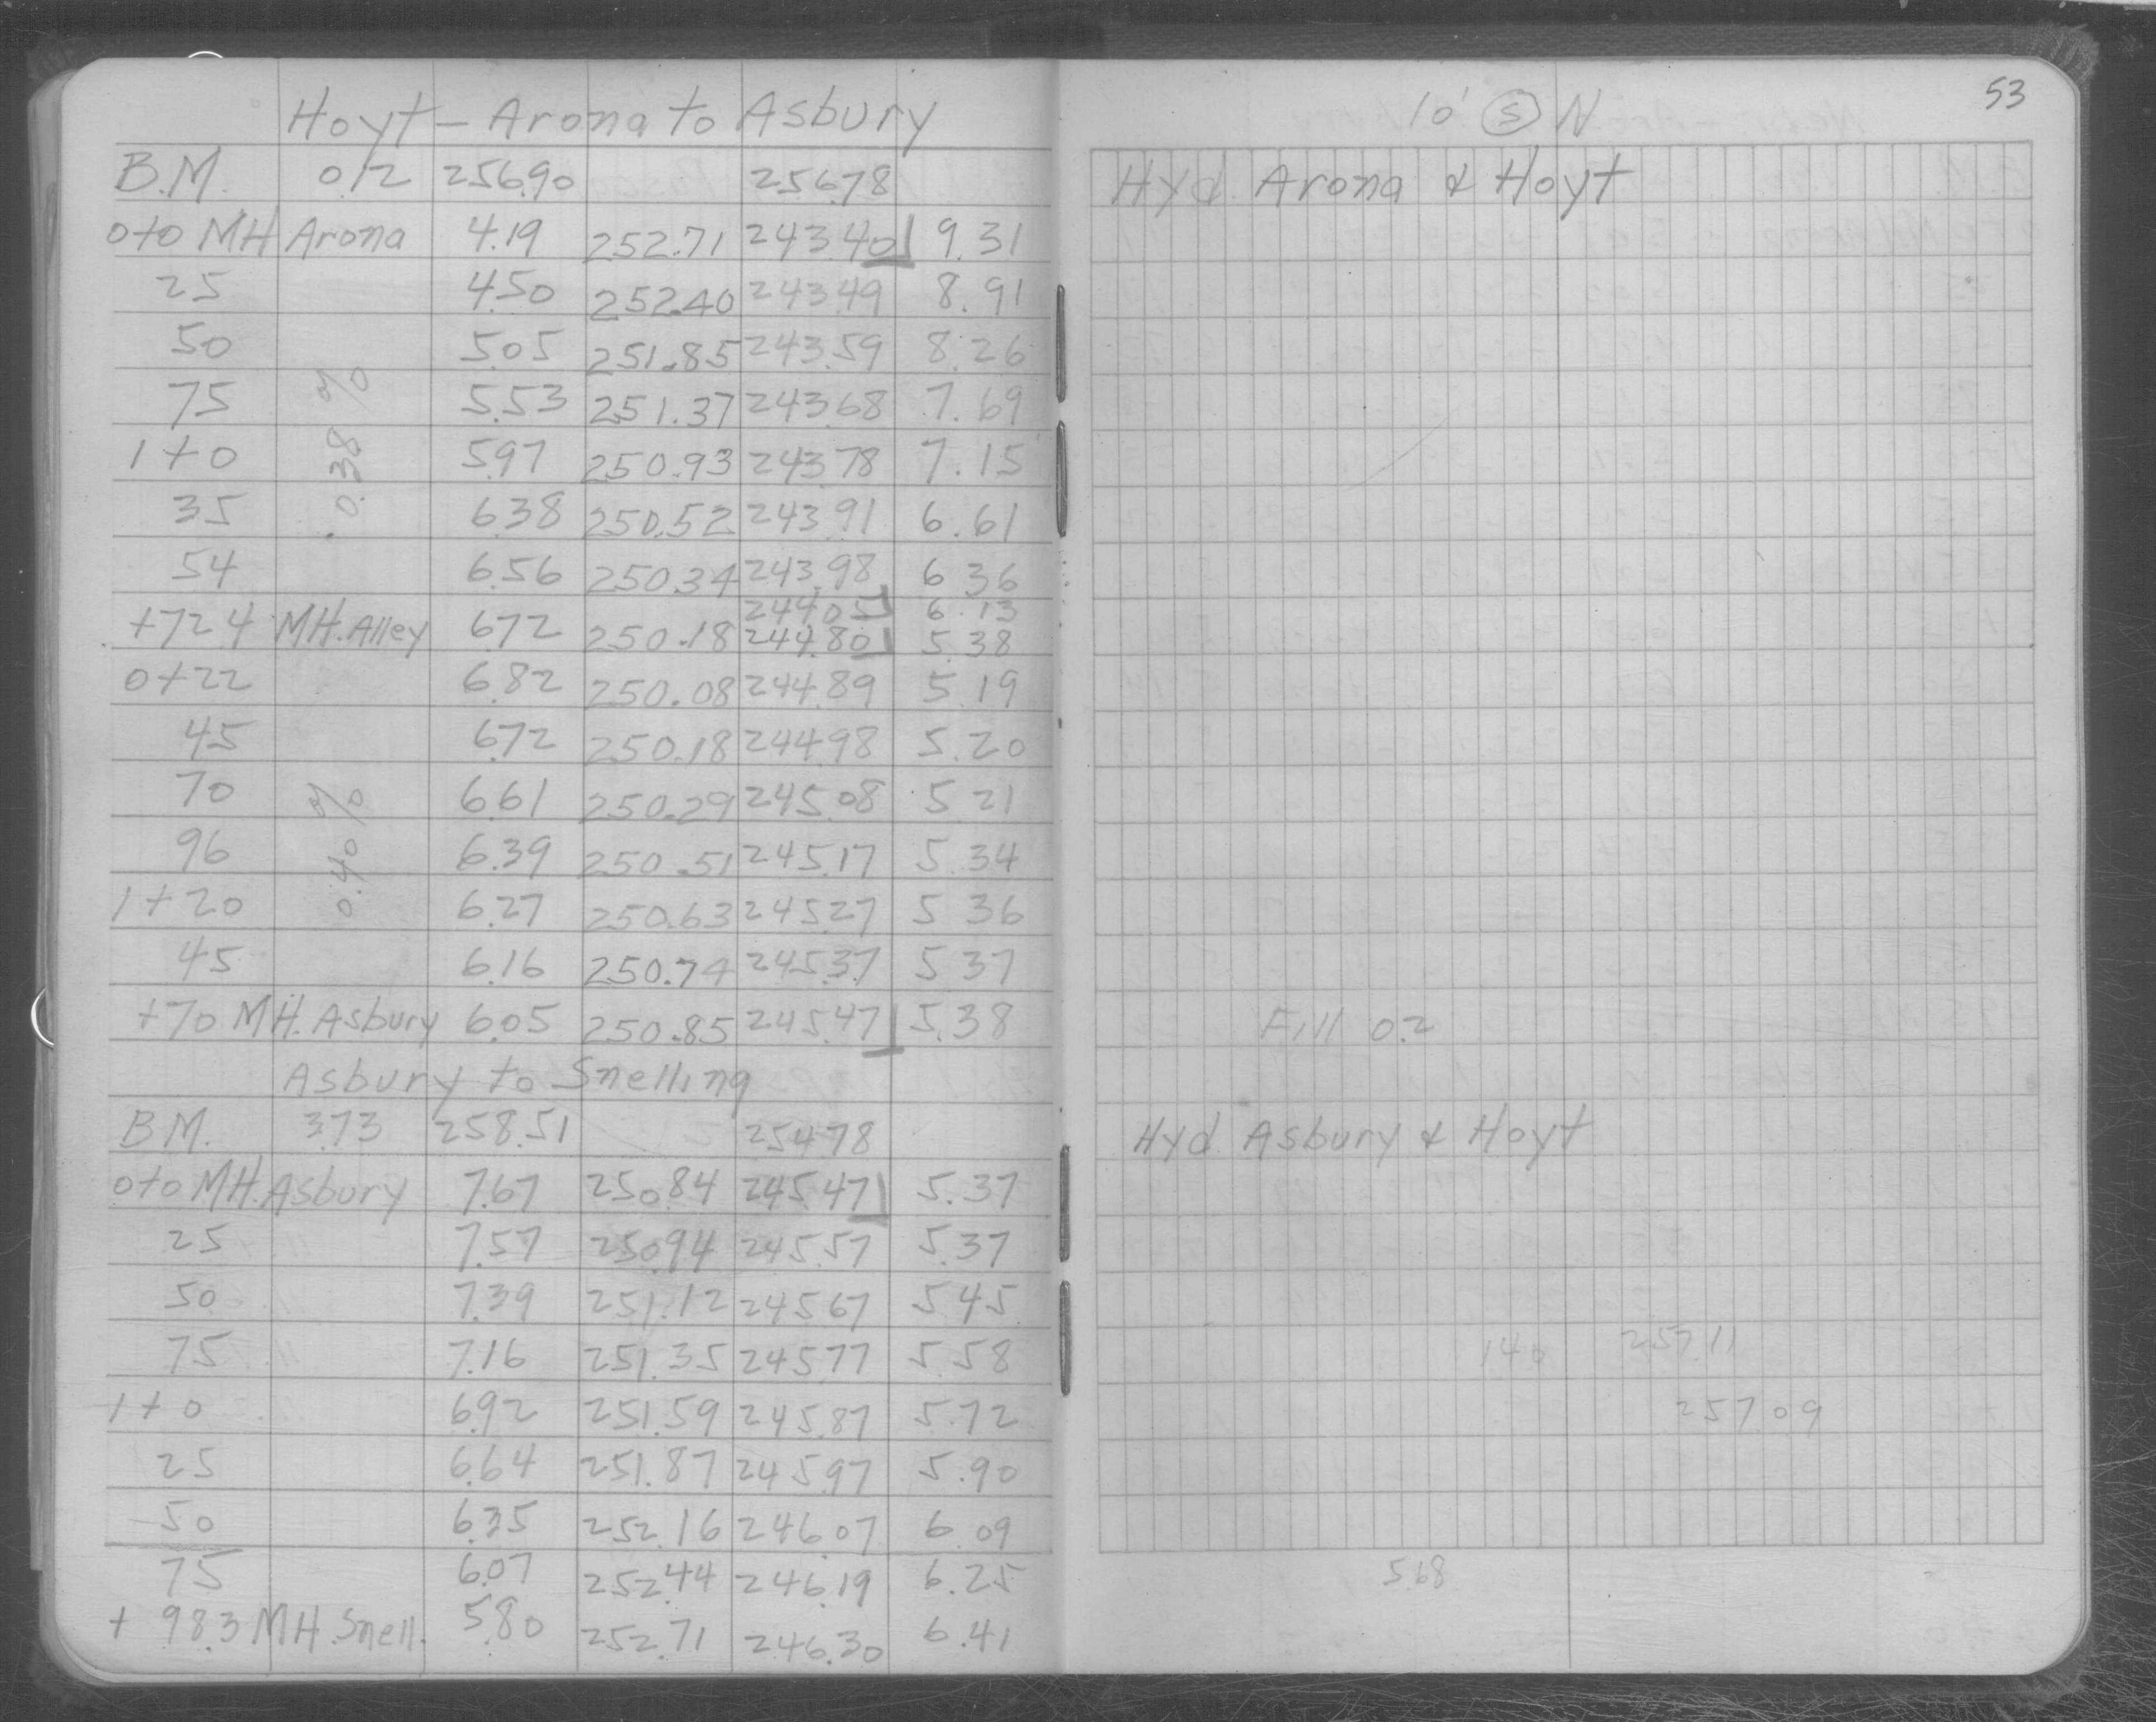 Hoyt - Arona to Asbury
B.M. 0.12 256.90 256.78
0+0 MH Arona 4.19 252.71 243.40 9.31
25 4.50 252.40 243.49 8.91
50 5.05 251.85 243.59 8.26
75 5.53 251.37 243.68 7.69
1+0 5.97 250.93 243.78 7.15
35 6.38 250.52 243.91 6.61
54 6.56 250.34 243.98 6.36
244.05 6.13
+72.4 MH. Alley 6.72 250.18 244.80 5.38
0+22 6.82 250.08 244.89 5.19
45 6.72 250.18 244.98 5.20
70 6.61 250.29 245.08 5.21
96 6.39 250.51 245.17 5.34
1+20 6.27 250.63 245.27 5.36
45 6.16 250.74 245.37 5.37
+70 MH. Asbury 6.05 250.85 245.47 5.38
0.38 %
0.40 %
Asbury to Snelling
B.M. 3.73 258.51 254.78
0+0 MH. Asbury 7.67 250.84 245.47 5.37
25 7.57 250.94 245.57 5.37
50 7.39 251.12 245.67 5.45
75 7.16 251.35 245.77 5.58
1+0 6.92 251.59 245.87 5.72
25 6.64 251.87 245.97 5.90
50 6.35 252.16 246.07 6.09
75 6.07 252.44 246.19 6.25
+ 98.3 MH. Snell. 5.80 252.71 246.30 6.41
53
10' S N
Hyd. Arona & Hoyt
Fill 0.2
Hyd. Asbury & Hoyt
140 257.11
257.09
5.68